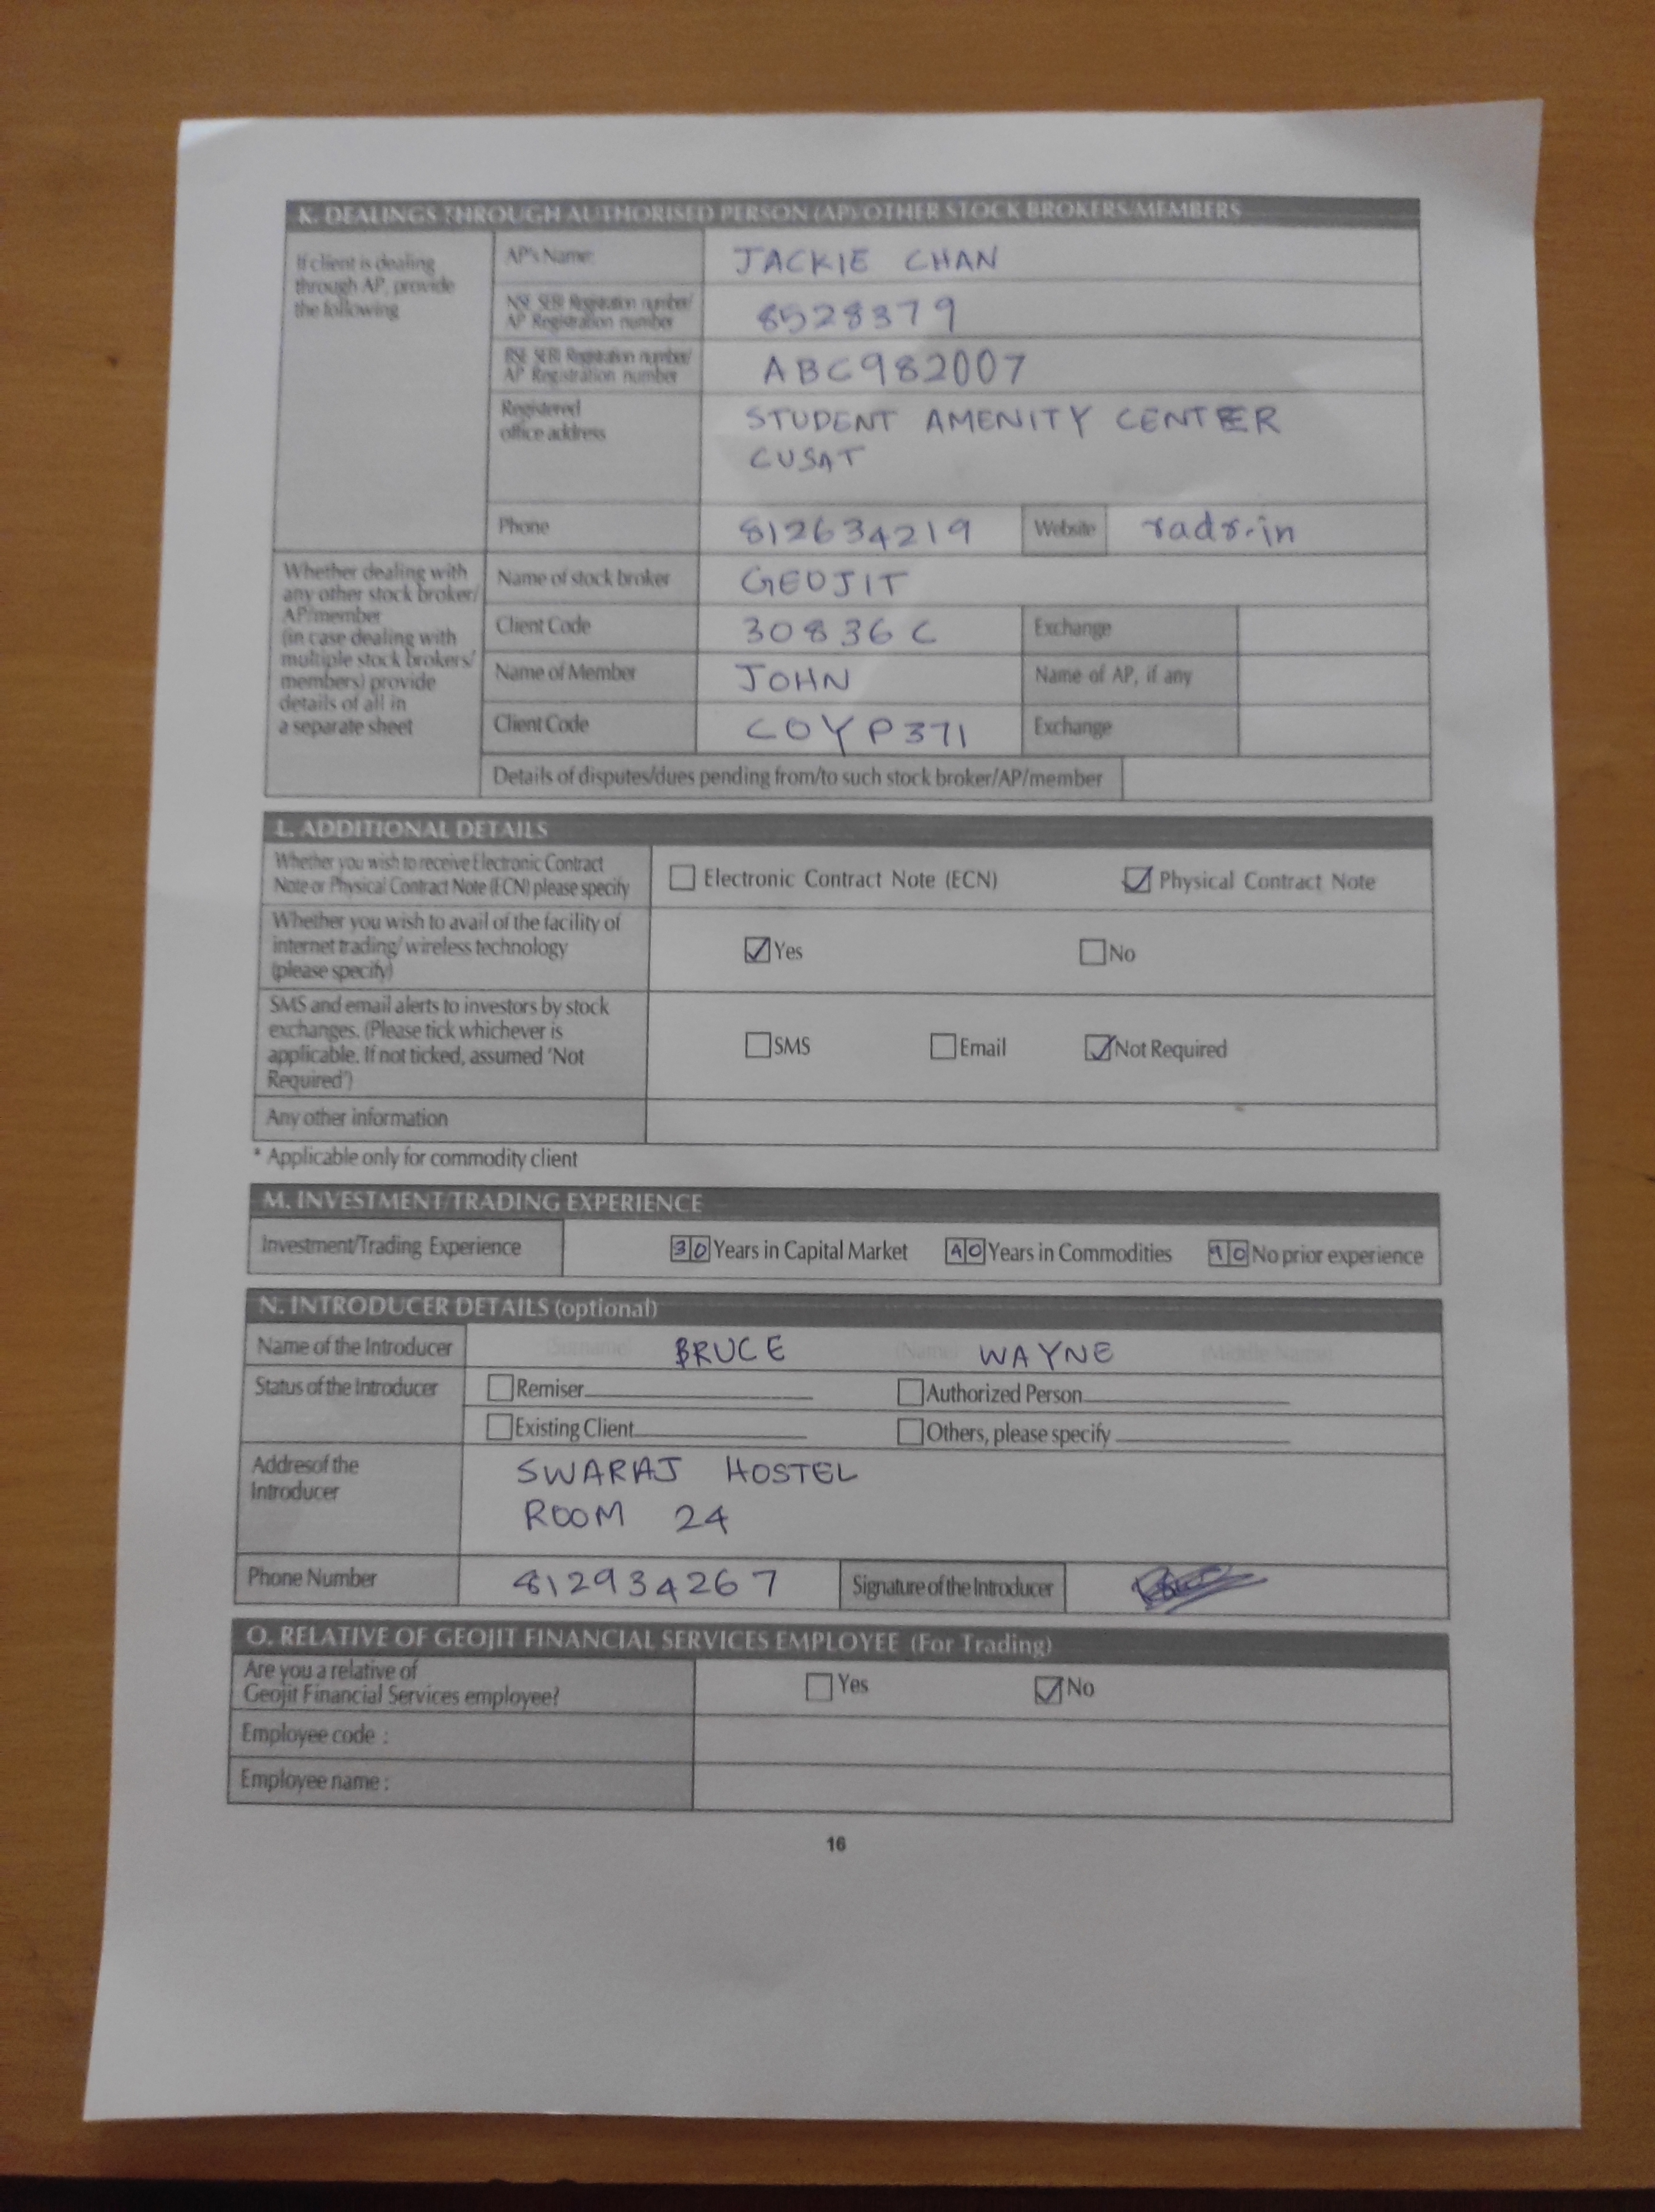 K. DEALINGS THROUGH AUTHORISED PERSON (AP)/OTHER STOCK BROKERS/MEMBERS
If client is dealing
through AP, provide
the following
AP's Name: JACKIE CHAN
NSE SEBI Registration number/
AP Registration number 8528379
BSE SEBI Registration number/
AP Registration number ABC982007
Registered
office address
STUDENT AMENITY CENTER
CUSAT
Phone 812634219 Website radr.in
Whether dealing with
any other stock broker/
AP/member
(in case dealing with
multiple stock brokers/
members) provide
details of all in
a separate sheet
Name of stock broker GEOJIT
Client Code 30836C Exchange
Name of Member JOHN Name of AP, if any
Client Code COYP371 Exchange
Details of disputes/dues pending from/to such stock broker/AP/member
L. ADDITIONAL DETAILS
Whether you wish to receive Electronic Contract
Note or Physical Contract Note (ECN) please specify
Electronic Contract Note (ECN) Physical Contract Note
Whether you wish to avail of the facility of
internet trading/ wireless technology
(please specify)
Yes No
SMS and email alerts to investors by stock
exchanges. (Please tick whichever is
applicable. If not ticked, assumed 'Not
Required')
SMS Email Not Required
Any other information
* Applicable only for commodity client
M. INVESTMENT/TRADING EXPERIENCE
Investment/Trading Experience 30 Years in Capital Market 40 Years in Commodities 90 No prior experience
N. INTRODUCER DETAILS (optional)
Name of the Introducer (Surname) BRUCE (Name) WAYNE (Middle Name)
Status of the Introducer Remiser Authorized Person
Existing Client Others, please specify
Addresof the
Introducer
SWARAJ HOSTEL
ROOM 24
Phone Number 812934267 Signature of the Introducer
O. RELATIVE OF GEOJIT FINANCIAL SERVICES EMPLOYEE (For Trading)
Are you a relative of
Geojit Financial Services employee?
Yes No
Employee code :
Employee name :
16